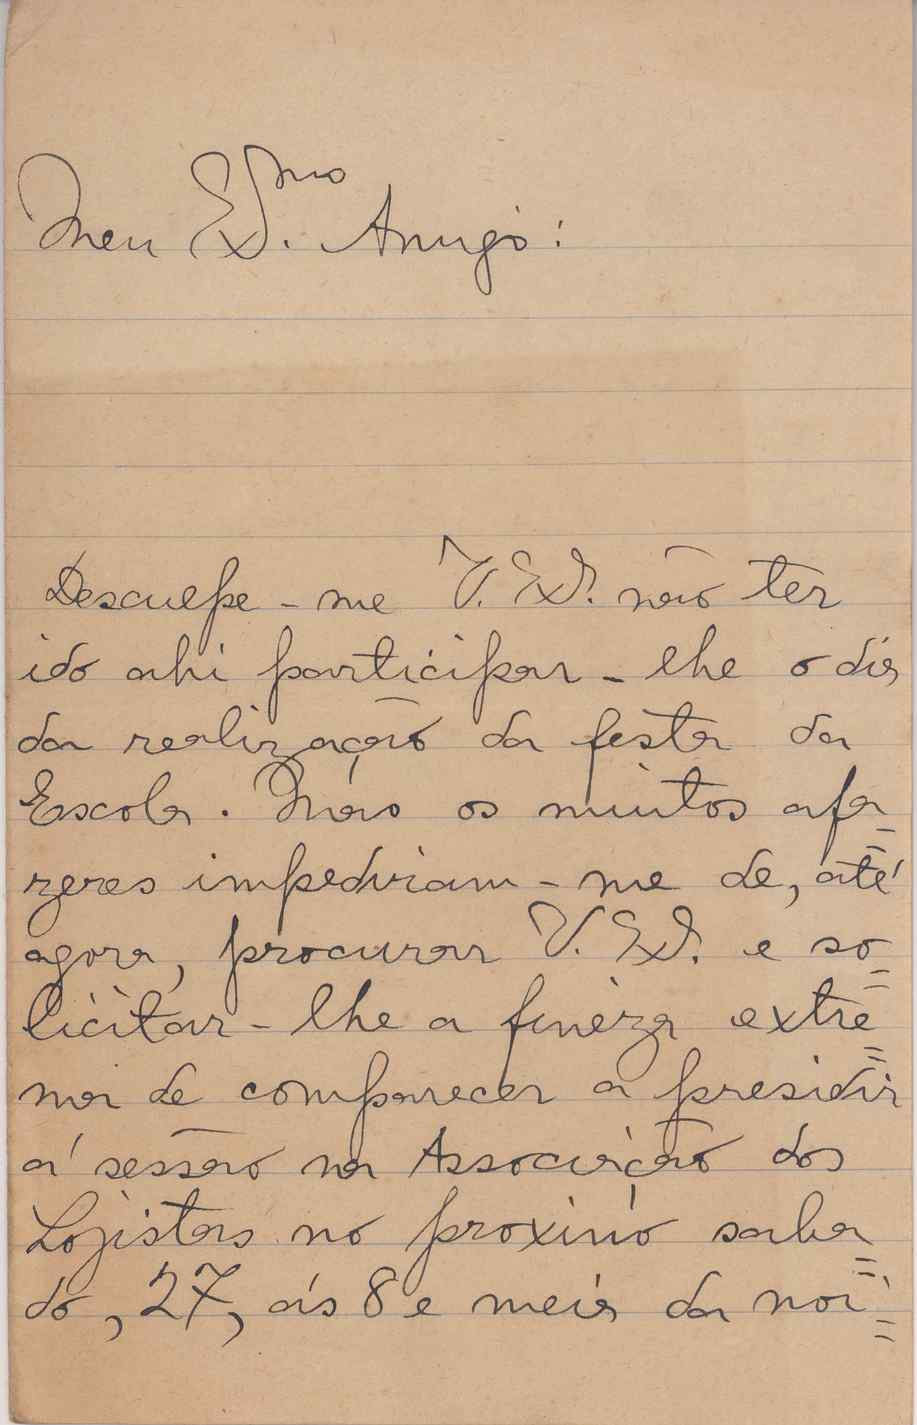 Meu Ex.mo Amigo:
Desculpe-me V. Ex.ª não ter
ido ahi participar-lhe o dia
da realização da festa da
Escola. Mas os muitos afa=
zeres impediram-me de, até
agora, procurar V. Ex.ª e so=
licitar-lhe a fineza extre=
ma de comparecer a presidir
á sessão na Associação dos
Lojistas no proximo saba=
do, 27, ás 8 e meia da noi=